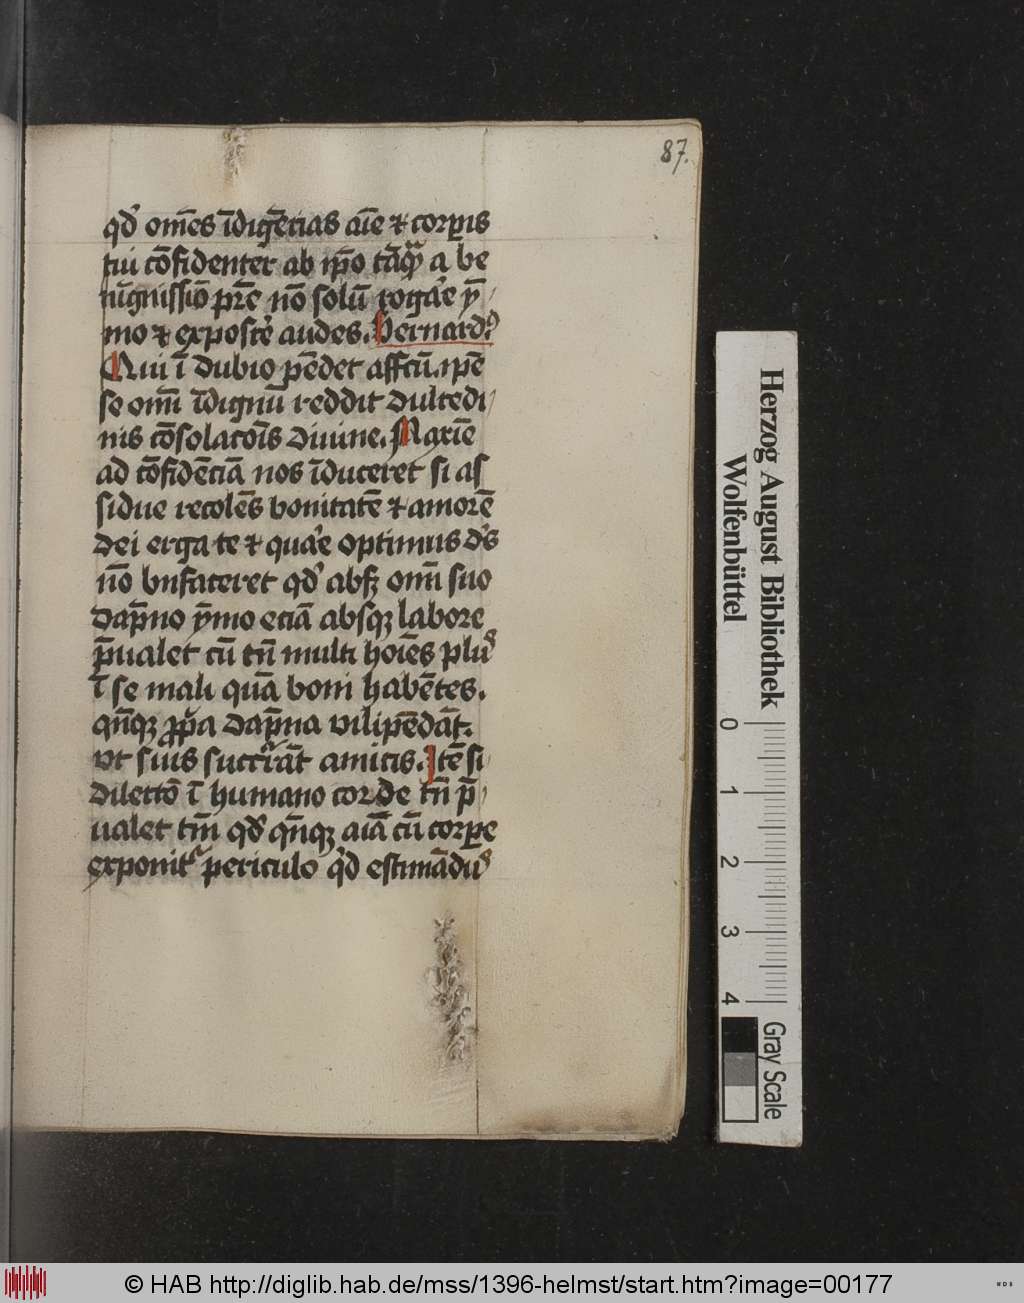 87.
qd' om̄es īdigēcias aīe ⁊ corp̄is
tui cōfidenter ab ip̄o tāq̄ a be
nīgnissīo pr̄e nō solū rogar'e ȳ
mo ⁊ exposcer'e audes. Bernard9
Qui ī dubio pēdet affcū. ip̄e
se om̄i īdignū reddit dulcedi
nis cōsolacōis diuine. Maxīe
ad cōfidēciā nos īduceret si as
sidue recolēs bonitatē ⁊ amorē
dei erga te ⁊ quar'e optimus d's
nō bn̄faceret qd' absqꝫ om̄i suo
dāpno ȳmo eciā absqꝫ labore
p̄ualet cū tn̄ multi hoīes plu9
ī se mali quā boni habētes.
qn̄qꝫ ꝓp̄a dāpna vilipēdāt.
vt suis succurrāt amicis. Itē si
dilectō ī humano corde tn̄ p̄
ualet tm̄ qd' qn̄qꝫ aīā cū corꝑe
exponit' periculo qd' estimādū9
Herzog August Bibliothek
Wolfenbüttel
0 1 2 3 4
Gray Scale
© HAB http://diglib.hab.de/mss/1396-helmst/start.htm?image=00177
WDB